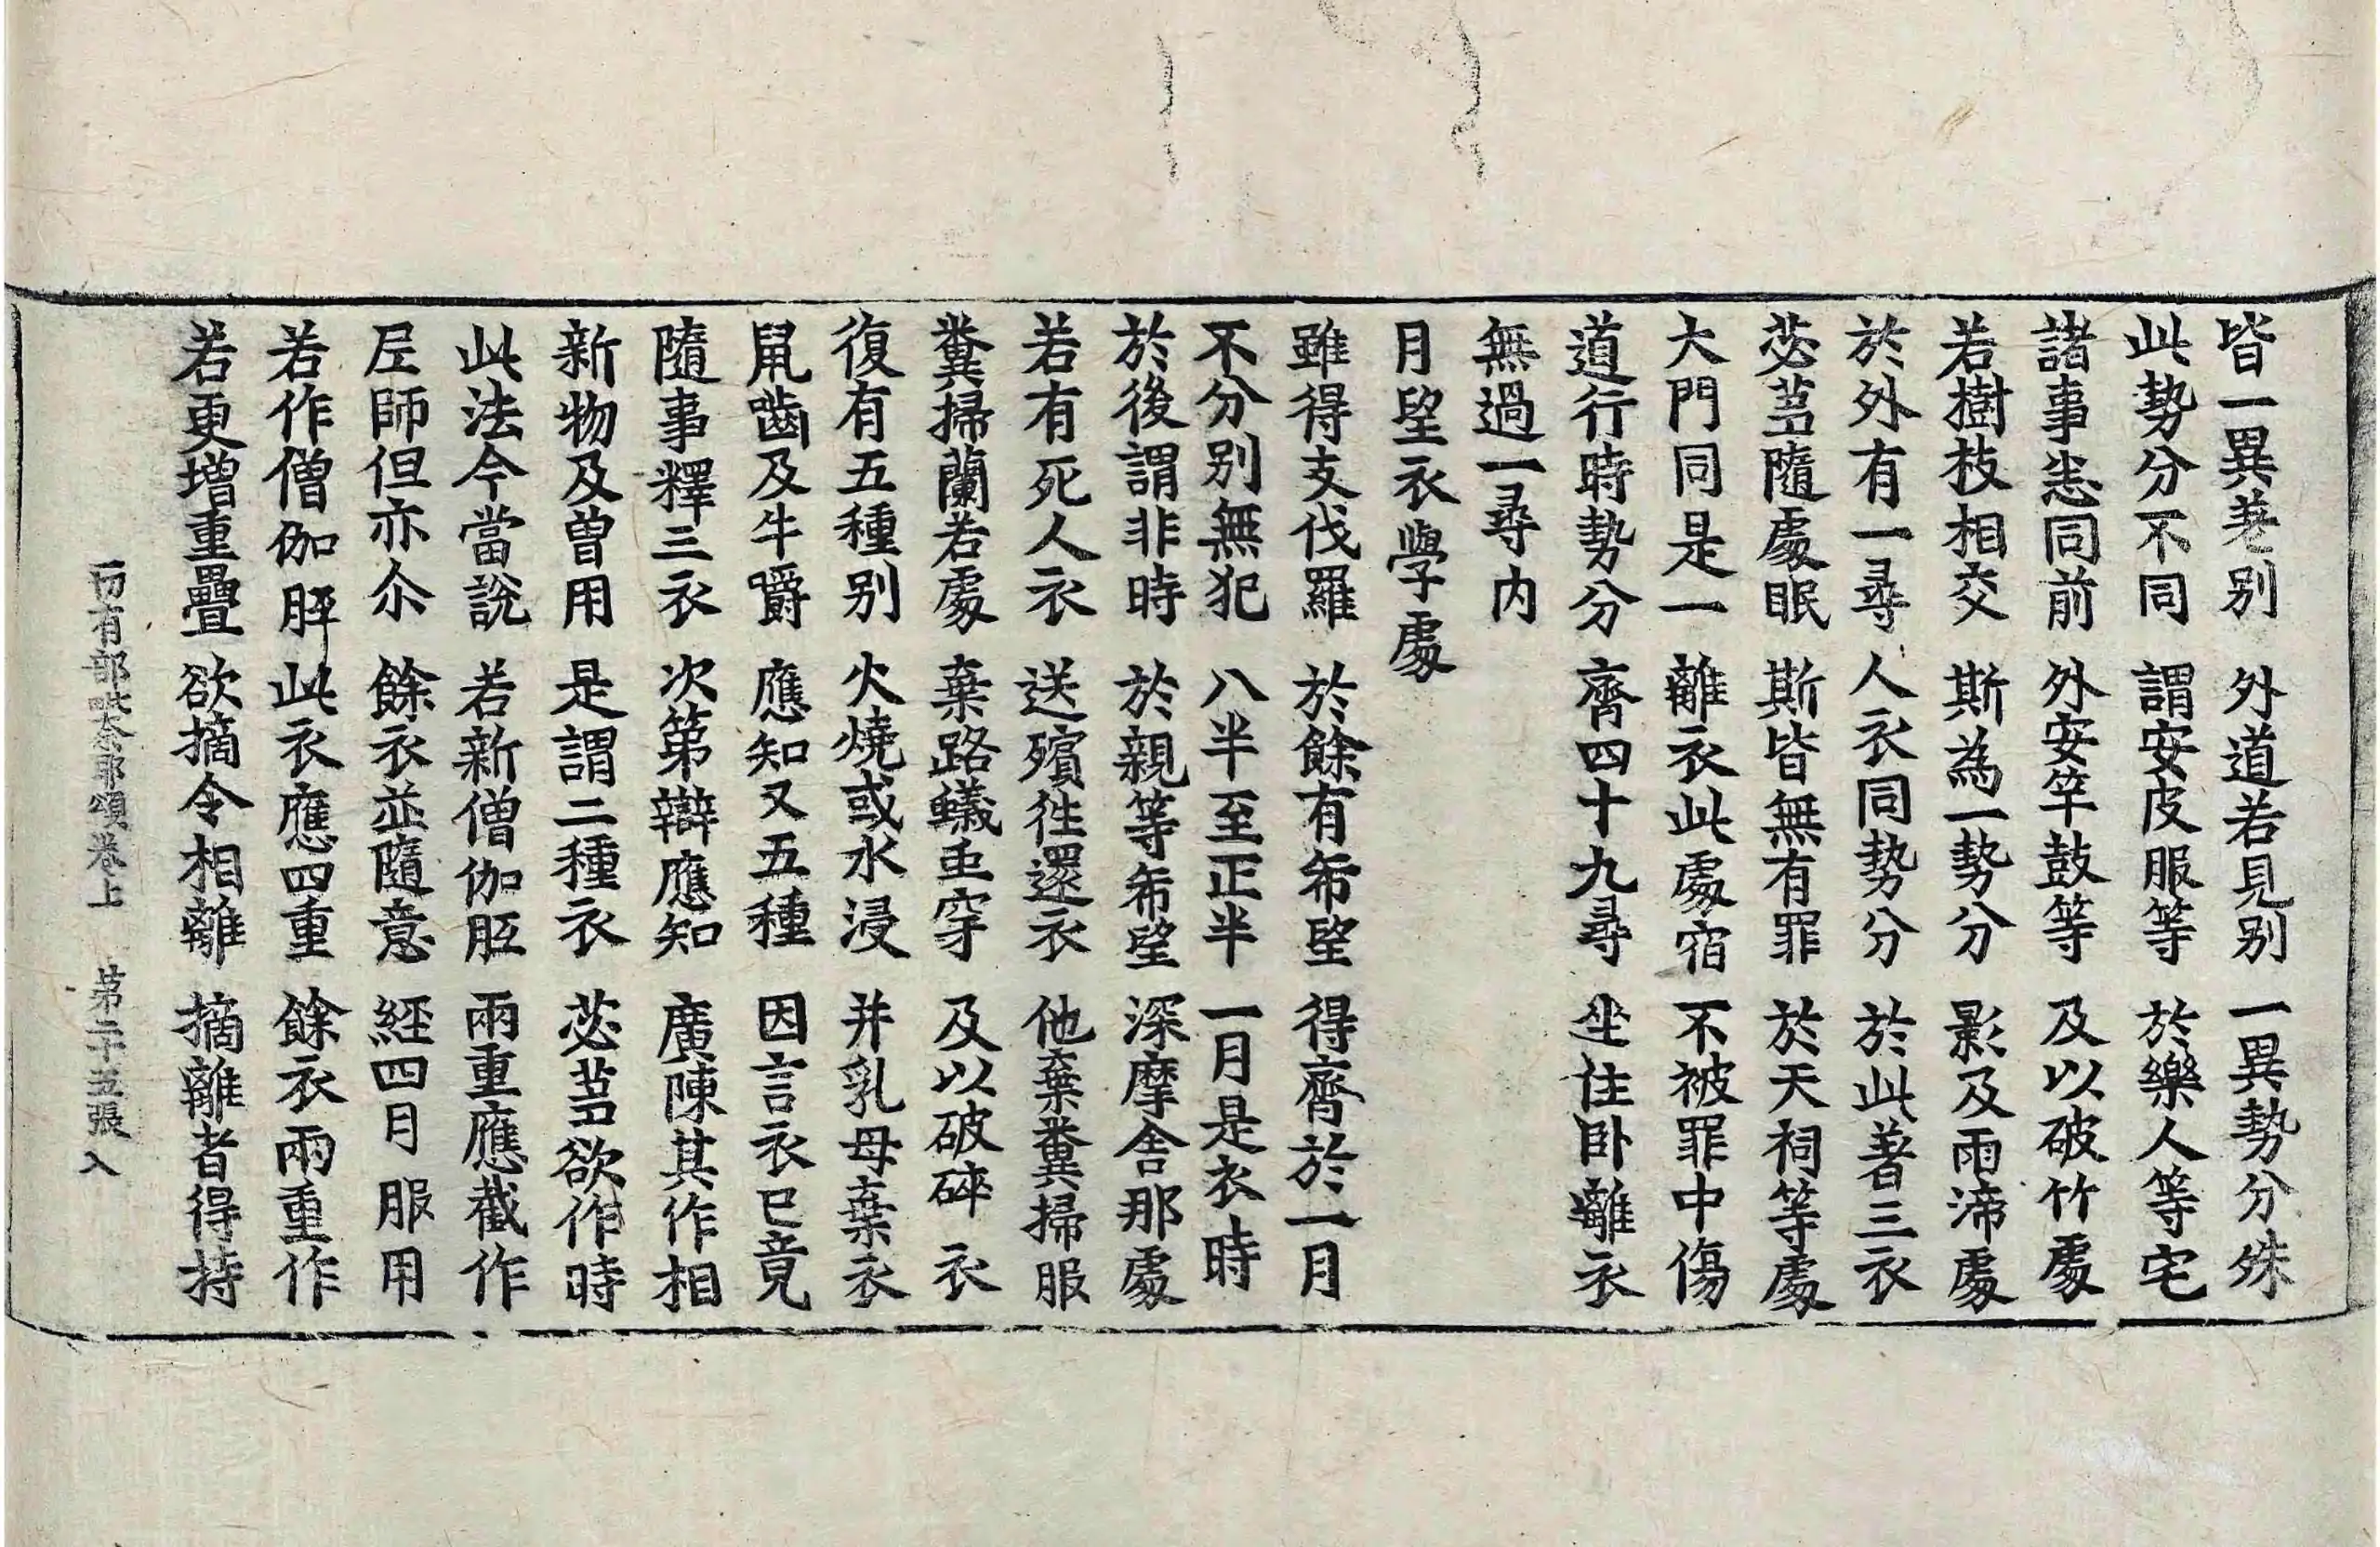 皆一異巷別 外道若見別 一異勢分殊
此勢分不同 謂安皮服等 於樂人等宅
諸事恙同前 外安竿鼓等 及以破竹處
若樹枝相交 斯為一勢分 影及雨渧處
於外有一尋 人衣同勢分 於此著三衣
苾蒭隨處眠 斯皆無有罪 於天祠等處
大門同是一 離衣此處宿 不被罪中傷
道行時勢分 齊四十九尋 坐住卧離衣
無過一尋內
月望衣學處
雖得支伐羅 於餘有希望 得齊於一月
不分別無犯 八半至正半 一月是衣時
於後謂非時 於親等希望 深摩舍那處
若有死人衣 送殯往還衣 他棄糞掃服
糞掃蘭若處 棄路蟻蚛穿 及以破碎衣
復有五種別 火燒或水浸 并乳母棄衣
鼠齧及牛嚼 應知又五種 因言衣已竟
隨事釋三衣 次第辯應知 廣陳其作相
新物及曾用 是謂二種衣 苾蒭欲作時
此法今當說 若新僧伽胝 兩重應截作
尼師但亦尒 餘衣並隨意 經四月服用
若作僧伽胝 此衣應四重 餘衣兩重作
若更增重疊 欲摘令相離 摘離者得持
一切有部毗奈耶頌卷上 第二十五張 入